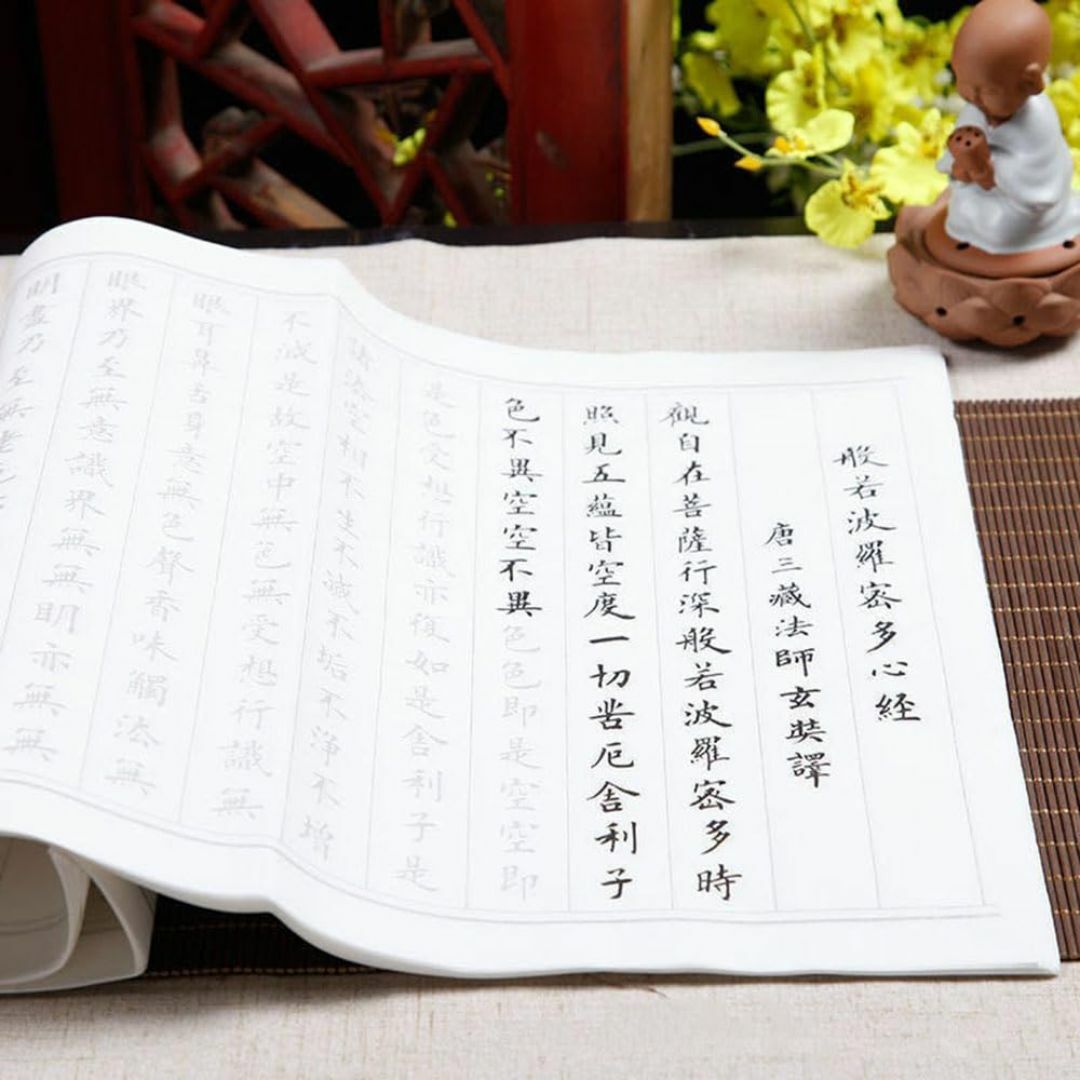 般若波羅密多心経
唐三藏法師玄奘譯
觀自在菩薩行深般若波羅密多時
照見五蘊皆空度一切苦厄舍利子
色不異空空不異色色即是空空即
是色受想行識亦復如是舍利子是
諸法空相不生不滅不垢不淨不增
不減是故空中無色無受想行識無
眼耳鼻舌身意無色聲香味觸法無
眼界乃至無意識界無無明亦無無
明盡乃至無老死